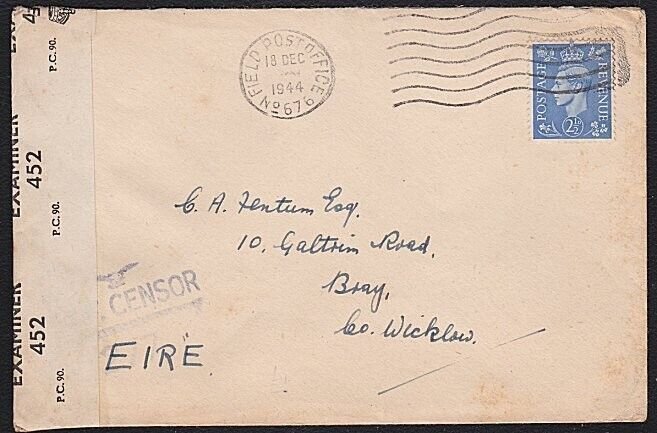 FIELD POST OFFICE
18 DEC
1944
No 676
POSTAGE
REVENUE
2½D
C. A. Fentum Esq.
10. Galtrim Road,
Bray,
Co. Wicklow.
EIRE.
CENSOR
P.C. 90.
EXAMINER
452
P.C. 90.
EXAMINER
452
P.C. 90.